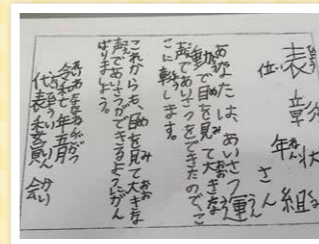 表彰状
位 年 組
さん
あなたは、あいさつ運
動で目を見て大きな
声であいさつをできたので、こ
こに表します。
これからも、目を見て大きな
声であいさつができるようにがん
ばりましょう。
令和七年五月
代表委員会